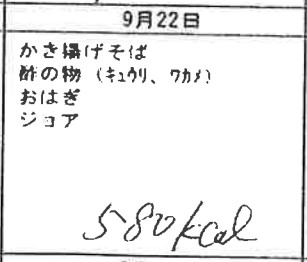 9月22日
かき揚げそば
酢の物(キュウリ、ワカメ)
おはぎ
ジョア
580kcal